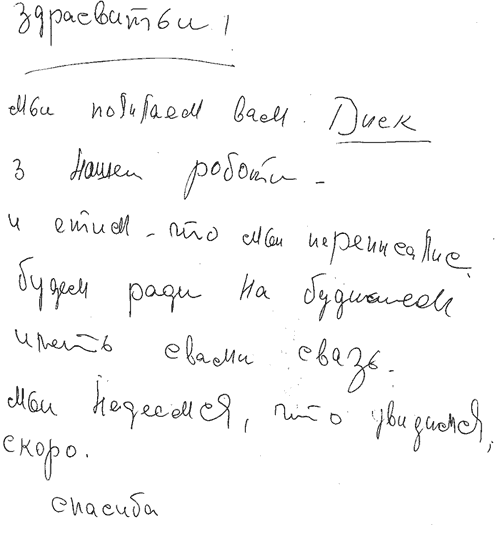 здрасвитьи!
мы посилаем вам. Диск
з нашей роботи -
и етим - што мы переписалис
будем ради на будишчем
иметь свами свазь.
мы надеемся, што увидимся,
скоро.
спасиба